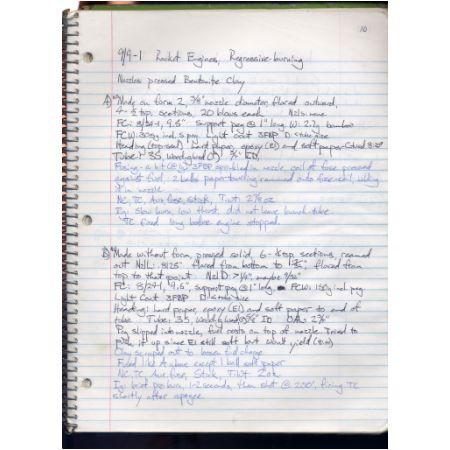 10
9/9-1 Rocket Engines, Regressive-burning
Nozzles pressed Bentonite Clay
A) Made on form 2, 3/8" nozzle diameter, flared outward,
4 - 1/2 tsp. sections, 20 blows each
FC: 8/29-1, 9.5" Support peg @ 1" long, W: 2.7g, bamboo
FCW: incl. peg Light Coat 3FBP
Heading (top seal) Hard paper, epoxy (E1) and soft paper
Tube: 35, wood glued 3/4" ID,
in nozzle, coil of fuse pressed
against fuel - 2 balls paper toweling rammed onto fuse-coil,
it in nozzle
NC, TC, Aux. fuse, Stick, Twt: 2
Ig: Slow burn, low thrust, did not leave launch tube
TC fired long before engine stopped.
B) Made without form, pressed solid, 6 - 1/2 tsp sections, reamed
out flared from bottom to flared from
top to that point NzlD > 1/4", maybe 9/32"
FC: 8/29-1, 9.5", support peg @ 1" long FCW: incl. peg
Light Coat 3FBP
Heading: Hard paper, epoxy (E1) and soft paper to end of
tube Tube: 35, wood glued ID OAL:
Peg slipped into nozzle, fuel rests on top of nozzle Tried to
push it up since E1 still soft but won't yield
Clay scraped out to loosen fuel charge
Fused like A above except 1 ball soft paper
NC, TC, Aux. fuse, Stick, TWt: 2
Ig: brief pre burn, 1-2 seconds, then shot @ 200', firing TC
shortly after apogee